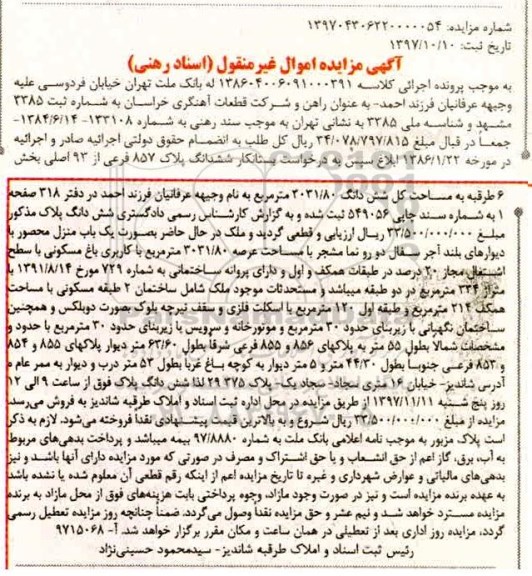 شماره مزایده: ۱۳۹۷۰۴۳۰۶۲۲۰۰۰۰۰۵۴
تاریخ ثبت: ۱۳۹۷/۱۰/۱۰
آگهی مزایده اموال غیرمنقول (اسناد رهنی)
به موجب پرونده اجرائی کلاسه ۱۳۸۶۰۴۰۰۶۰۹۱۰۰۰۳۹۱ له بانک ملت تهران خیابان فردوسی علیه
وجیهه عرفانیان فرزند احمد- به عنوان راهن و شرکت قطعات آهنگری خراسان به شماره ثبت ۳۳۸۵
مشهد و شناسه ملی ۳۳۸۵ به نشانی تهران به موجب سند رهنی به شماره ۱۳۳۱۰۸-۱۳۸۴/۶/۱۴-
جمعا در قبال مبلغ ۳۴/۰۷۸/۷۹۷/۸۱۵ ریال کل طلب به انضمام حقوق دولتی اجرائیه صادر و اجرائیه
در مورخه ۱۳۸۶/۱/۲۲ ابلاغ سپس به درخواست بستانکار ششدانگ پلاک ۸۵۷ فرعی از ۹۲ اصلی بخش
۶ طرقبه به مساحت کل شش دانگ ۳۰۳۱/۸۰ مترمربع به نام وجیهه عرفانیان فرزند احمد در دفتر ۳۱۸ صفحه
۱ به شماره سند چاپی ۵۴۹۰۵۶ ثبت شده و به گزارش کارشناس رسمی دادگستری شش دانگ پلاک مذکور
مبلغ ۳۳/۵۰۰/۰۰۰/۰۰۰ ریال ارزیابی و قطعی گردید و ملک در حال حاضر بصورت یک باب منزل محصور با
دیوارهای بلند آجر سفال دو رو نما مشجر با مساحت عرصه ۳۰۳۱/۸۰ مترمربع با کاربری باغ مسکونی با سطح
اشتغال مجاز ۲۰ درصد در طبقات همکف و اول و دارای پروانه ساختمانی به شماره ۷۲۹ مورخ ۱۳۹۱/۸/۱۴ با
متراژ ۳۳۴ مترمربع در دو طبقه میباشد و مستحدثات موجود ملک شامل ساختمان ۲ طبقه مسکونی با مساحت
همکف ۲۱۴ مترمربع و طبقه اول ۱۲۰ مترمربع با اسکلت فلزی و سقف تیرچه بلوک بصورت دوبلکس و همچنین
ساختمان نگهبانی با زیربنای حدود ۳۰ مترمربع و موتورخانه و سرویس با زیربنای حدود ۳۰ مترمربع با حدود و
مشخصات شمالا بطول ۵۵ متر به پلاکهای ۸۵۶ و ۸۵۵ فرعی شرقا بطول ۶۳/۶۰ متر دیوار پلاکهای ۸۵۵ و ۸۵۴
و ۸۵۳ فرعی جنوبا بطول ۴۴/۳۰ متر و ۵ متر دیوار به کوچه باغ غربا بطول ۵۳ متر درب و دیوار به ممر عام ه
آدرس شاندیز- خیابان ۱۶ متری سجاد- سجاد یک- پلاک ۳۷۵ ۲۹ لذا شش دانگ پلاک فوق از ساعت ۹ الی ۱۲
روز پنج شنبه ۱۳۹۷/۱۱/۱۱ از طریق مزایده در محل اداره ثبت اسناد و املاک طرقبه شاندیز به فروش می‌رسد.
مزایده از مبلغ ۳۳/۵۰۰/۰۰۰/۰۰۰ ریال شروع و به بالاترین قیمت پیشنهادی نقداً فروخته می‌شود. لازم به ذکر
است پلاک مزبور به موجب نامه اعلامی بانک ملت به شماره ۹۷/۸۸۸۰ بیمه میباشد و پرداخت بدهی‌های مربوط
به آب، برق، گاز اعم از حق انشعاب و یا حق اشتراک و مصرف در صورتی که مورد مزایده دارای آنها باشد و نیز
بدهی‌های مالیاتی و عوارض شهرداری و غیره تا تاریخ مزایده اعم از اینکه رقم قطعی آن معلوم شده یا نشده باشد
به عهده برنده مزایده است و نیز در صورت وجود مازاد، وجوه پرداختی بابت هزینه‌های فوق از محل مازاد به برنده
مزایده مسترد خواهد شد و نیم عشر و حق مزایده نقداً وصول می‌گردد. ضمناً چنانچه روز مزایده تعطیل رسمی
گردد، مزایده روز اداری بعد از تعطیلی در همان ساعت و مکان مقرر برگزار خواهد شد. آ- ۹۷۱۵۰۶۸
رئیس ثبت اسناد و املاک طرقبه شاندیز- سیدمحمود حسینی‌نژاد